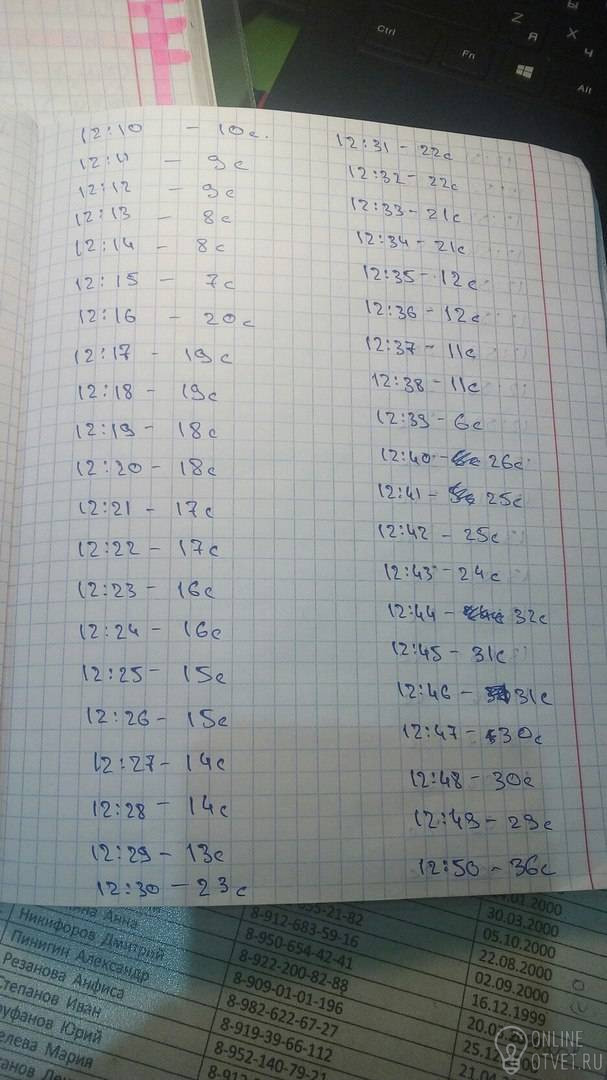 Z
Я
Ы
X
Ч
Ctrl
Fn
Alt
12:10 - 10с.
12:11 - 9с
12:12 - 9с
12:13 - 8с
12:14 - 8с
12:15 - 7с
12:16 - 20с
12:17 - 19с
12:18 - 19с
12:19 - 18с
12:20 - 18с
12:21 - 17с
12:22 - 17с
12:23 - 16с
12:24 - 16с
12:25 - 15с
12:26 - 15с
12:27 - 14с
12:28 - 14с
12:29 - 13с
12:30 - 23с
12:31 - 22с
12:32 - 22с
12:33 - 21с
12:34 - 21с
12:35 - 12с
12:36 - 12с
12:37 - 11с
12:38 - 11с
12:39 - 6с
12:40 - 26с
12:41 - 25с
12:42 - 25с
12:43 - 24с
12:44 - 32с
12:45 - 31с
12:46 - 31с
12:47 - 30с
12:48 - 30с
12:49 - 29с
12:50 - 36с
Анна
Никифоров Дмитрий 8-912-683-59-16 30.03.2000
Пинигин Александр 8-950-654-42-41 05.10.2000
Резанова Анфиса 8-922-200-82-88 22.08.2000
Степанов Иван 8-909-01-01-196 02.09.2000
Юрий 8-982-622-67-27 16.12.1999
Мария 8-919-39-66-112
8-952-140-79-21
ONLINE
OTVET.RU